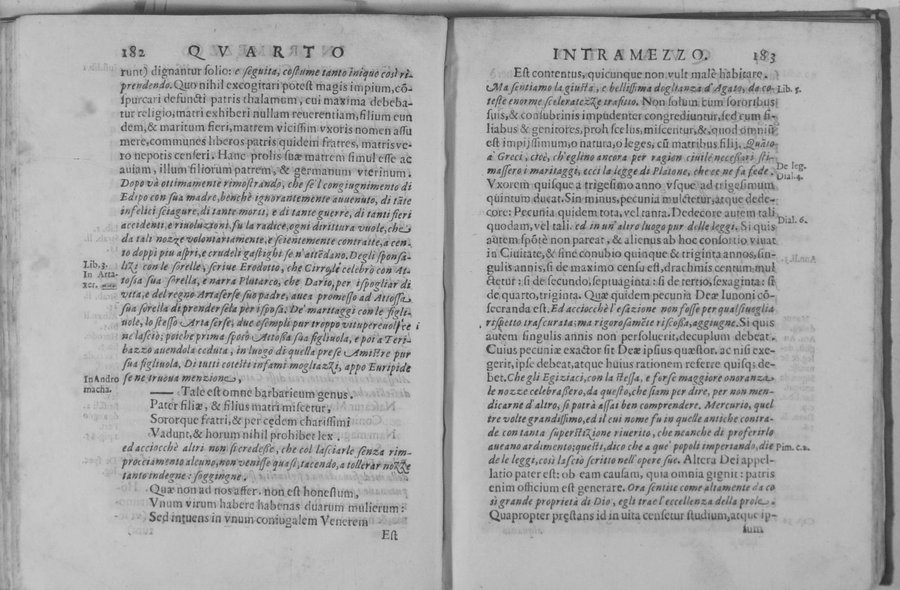 182 QVARTO
runt) dignantur solio: e seguita, costume tanto inique così ri-
prendendo. Quo nihil excogitari potest magis impium, cō-
spurcari defuncti patris thalamum, cui maxima debeba-
tur religio, matri exhiberi nullam reuerentiam, filium eun
dem, & maritum fieri, matrem vicissim vxoris nomen assu
mere, communes liberos patris quidem fratres, matris ve-
ro nepotis censeri. Hanc prolis suæ matrem simul esse ac
auiam, illum filiorum patrem, & germanum vterinum.
Dopo và ottimamente rimostrando, che se'l congiugnimento di
Edipo con sua madre, benchè ignorantemente auuenuto, di tāte
infelici sciagure, di tante morti, e di tante guerre, di tanti fieri
accidenti e riuoluzioni, fu la radice, ogni dirittura vuole, che
da tali nozze volontariamente, e scientemente contratte, a cen-
to doppi piu aspri, e crudeli gastighi se n'attēdano. Degli sponsa-
Lib. 3.
lizi con le sorelle, scriue Erodotto, che Cirro le celebrò con At-
In Arta-
tossa sua sorella, e narra Plutarco, che Dario, per ispogliar di
xer.
vita, e del regno Artaserse suo padre, auea promesso ad Attossa
sua sorella di prendersela per isposa. De' maritaggi con le figli-
uole, lo stesso Artaserse, due esempli pur troppo vituperenosi ce
ne lasciò; poiche prima sposò Attossa sua figliuola, e poi a Teri-
bazzo auendola ceduta, in luogo di quella prese Amistre pur
sua figliuola. Di tutti cotesti infami mogliazzi, appo Euripide
In Andro
se ne truoua menzione,
macha.
Tale est omne barbaricum genus,
Pater filiæ, & filius matri miscetur,
Sororque fratri, & per cędem charissimi
Vadunt, & horum nihil prohibet lex.
ed acciocchè altri non si credesse, che col lasciarle senza rim-
prociamento alcuno, non venisse quasi, tacendo, a tollerar nozze
tanto indegne: soggiugne.
Quæ non ad nos affer. non est honestum,
Vnum virum habere habenas duarum mulierum:
Sed intuens in vnum coniugalem Venerem
Est
INTRAMEZZO. 183
Est contentus, quicunque non vult malè habitare.
Ma sentiamo la giusta, e bellissima doglianza d'Agato, da co-
Lib. 5.
teste enorme sceleratezze trafitto. Non solum cum sororibus
suis, & consubrinis impudenter congrediuntur, sed cum fi-
liabus & genitores, proh scelus, miscentur, &, quod omniū
est impijssimum, o natura, o leges, cū matribus filij. Quāto
a' Greci, cioè, ch'eglino ancora per ragion ciuile necessari sti-
De leg.
massero i maritaggi, ecci la legge di Platone, che ce ne fa fede.
Dial. 4.
Vxorem quisque a trigesimo anno vsque ad trigesimum
quintum ducat. Sin minus, pecunia mulctetur, atque dede-
core: Pecunia quidem tota, vel tanta. Dedecore autem tali
Dial. 6.
quodam, vel tali. ed in un'altro luogo pur delle leggi. Si quis
autem spōtè non pareat, & alienus ab hoc consortio viuat
in Ciuitate, & sinè conubio quinque & triginta annos, sin-
gulis annis, si de maximo censu est, drachmis centum mul
ctetur: si de secundo, septuaginta: si de tertio, sexaginta: si
de quarto, triginta. Quæ quidem pecunia Deæ Iunoni cō-
secranda est. Ed acciocchè l'esazione non fosse per qualsiuoglia
rispetto trascurata; ma rigorosamēte riscossa, aggiugne. Si quis
autem singulis annis non persoluerit, decuplum debeat.
Cuius pecuniæ exactor sit Deæ ipsius quæstor. ac nisi exe-
gerit, ipse debeat, atque huius rationem referre quisq; de-
bet. Che gli Egiziaci, con la stessa, e forse maggiore onoranza
le nozze celebrassero, da questo, che siam per dire, per non men-
dicarne d'altro, si potrà assai ben comprendere. Mercurio, quel
tre volte grandissimo, ed il cui nome fu in quelle antiche contra-
de con tanta superstizione riuerito, che neanche di proferirlo
aueano ardimento; questi, dico che a que' popoli impertando, die
Pim. c. 2.
de le leggi, così lasciò scritto nell'opere sue. Altera Dei appel-
latio pater est: ob eam causam, quia omnia gignit: patris
enim officium est generare. Ora sentite come altamente da co
sì grande proprietà di Dio, egli trae l'eccellenza della prole.
Quapropter pręstans id in uita censetur studium, atque ip-
sum